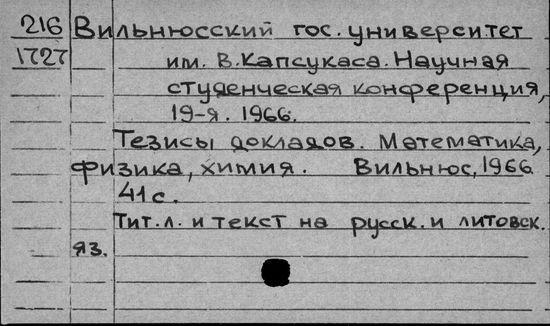 216 Вильнюсский гос. университет
1727 им. В. Капсукаса. Научная
студенческая конференция,
19-я. 1966.
Тезисы докладов. Математика,
физика, химия. Вильнюс, 1966
41 с.
Тит. л. и текст на русск. и литовск.
яз.